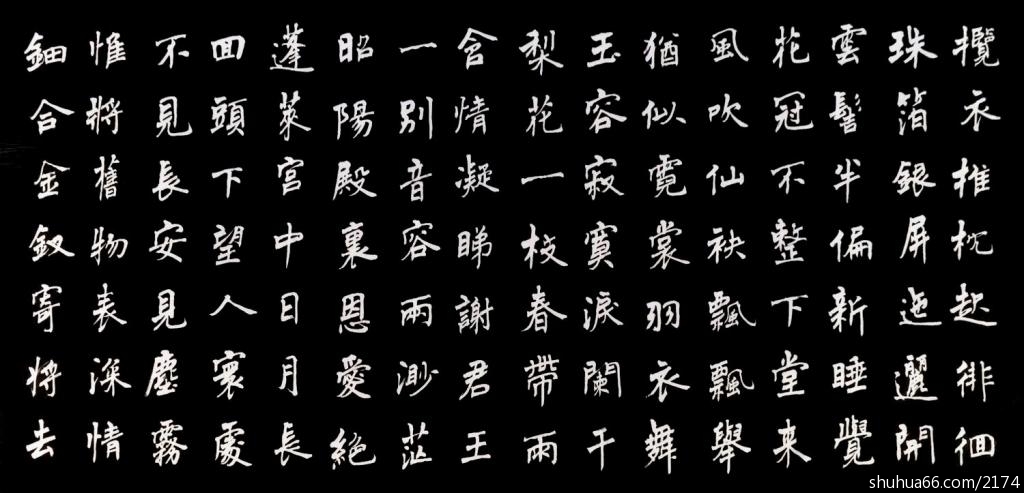 攬衣推枕起徘徊
珠箔銀屏迤邐開
雲髻半偏新睡覺
花冠不整下堂来
風吹仙袂飄飄舉
猶似霓裳羽衣舞
玉容寂寞淚闌干
梨花一枝春帶雨
含情凝睇謝君王
一别音容兩渺茫
昭陽殿裏恩愛絕
蓬萊宮中日月長
回頭下望人寰處
不見長安見塵霧
惟將舊物表深情
鈿合金釵寄將去
shuhua66.com/2174